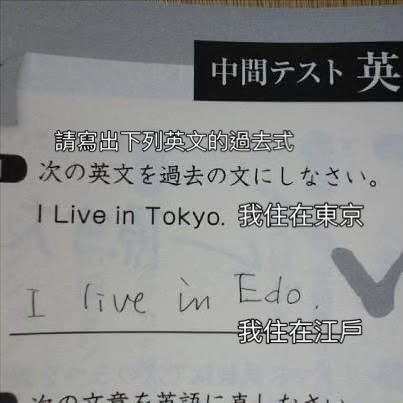 中間テスト 英
請寫出下列英文的過去式
次の英文を過去の文にしなさい。
I Live in Tokyo. 我住在東京
I live in Edo.
我住在江戶
次の文章を英語に直しなさい